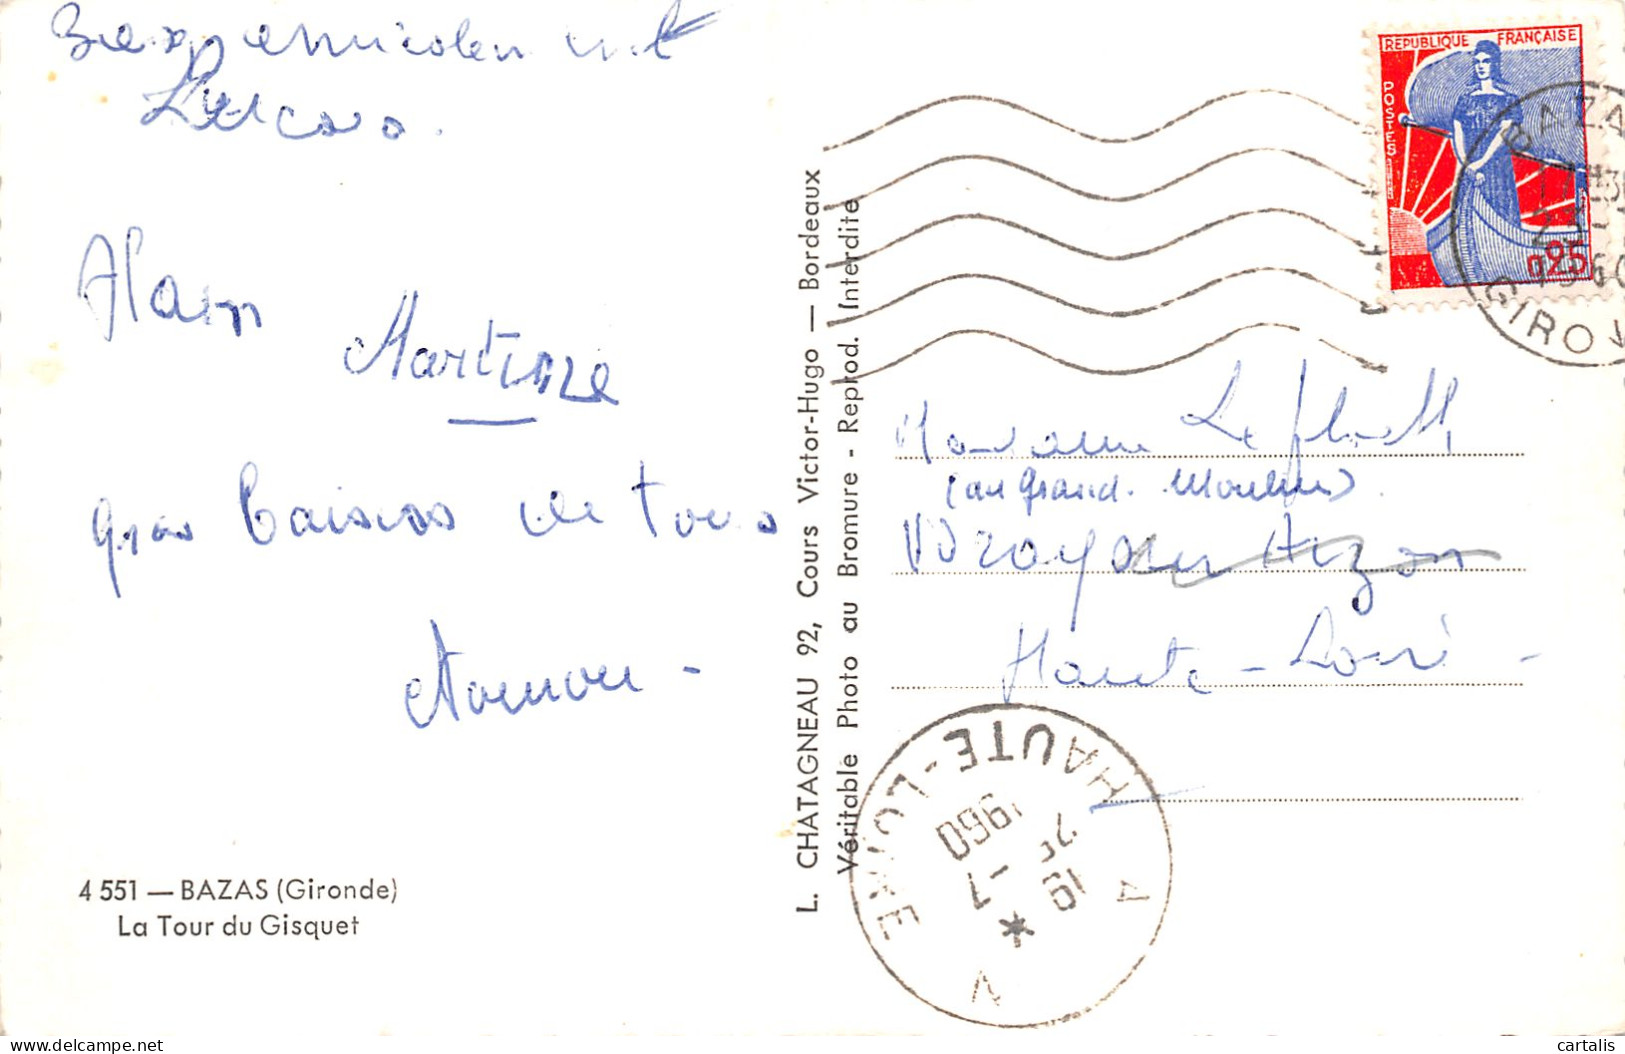 Bien amicalement
Lucas.
Alain
Martine
gros baisers de tous
4 551 — BAZAS (Gironde)
La Tour du Gisquet
L. CHATAGNEAU 92, Cours Victor-Hugo — Bordeaux
Véritable Photo au Bromure - Reprod. Interdite
REPUBLIQUE FRANÇAISE
POSTES
0,25
BAZAS
GIRONDE
Madame
(au grand Moulin).
Haute-Loire
HAUTE-LOIRE
19 25
* -7
1960
cartalis